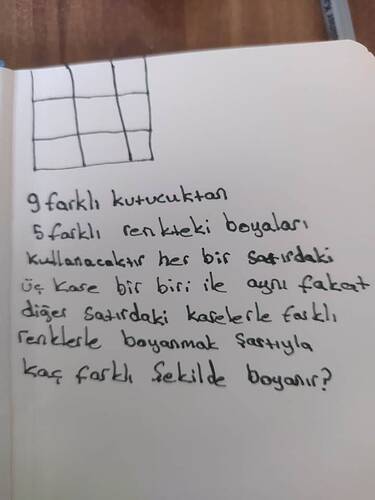 9 farklı kutucuktan
5 farklı renkteki boyaları
kullanacaktır her bir satırdaki
üç kare bir biri ile aynı fakat
diğer satırdaki karelerle farklı
renklerle boyanmak şartıyla
kaç farklı şekilde boyanır?